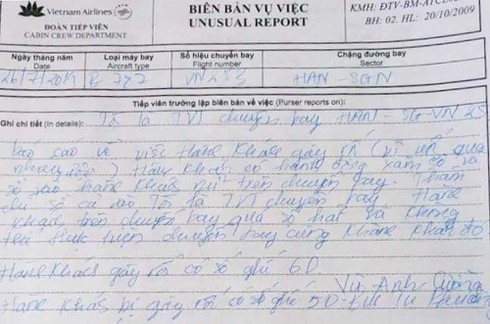 Vietnam Airlines
ĐOÀN TIẾP VIÊN
CABIN CREW DEPARTMENT
BIÊN BẢN VỤ VIỆC
UNUSUAL REPORT
KMH: ĐTV-BM-ATCL
BH: 02. HL: 20/10/2009
Ngày tháng năm
Date
Loại máy bay
Aircraft type
Số hiệu chuyến bay
Flight number
Chặng đường bay
Sector
26/7/2019 B 787 VN 253 HAN - SGN
Tiếp viên trưởng lập biên bản về việc (Purser reports on):
Ghi chi tiết (in details): Tôi là TVT chuyến bay HAN - SG - VN 25
báo cáo về việc Hành khách gây rối (vì uống quá
nhiều ) Hành khách có hành động xâm
hành khách nữ trên chuyến bay. Thậm
chí Tôi là TVT chuyến bay Hành
khách trên chuyến bay quá và không
thực hiện chuyến bay cùng khách đó
Hành khách gây rối có số ghế 6D
Vũ Anh Cường
Hành khách bị gây rối có số ghế 5D